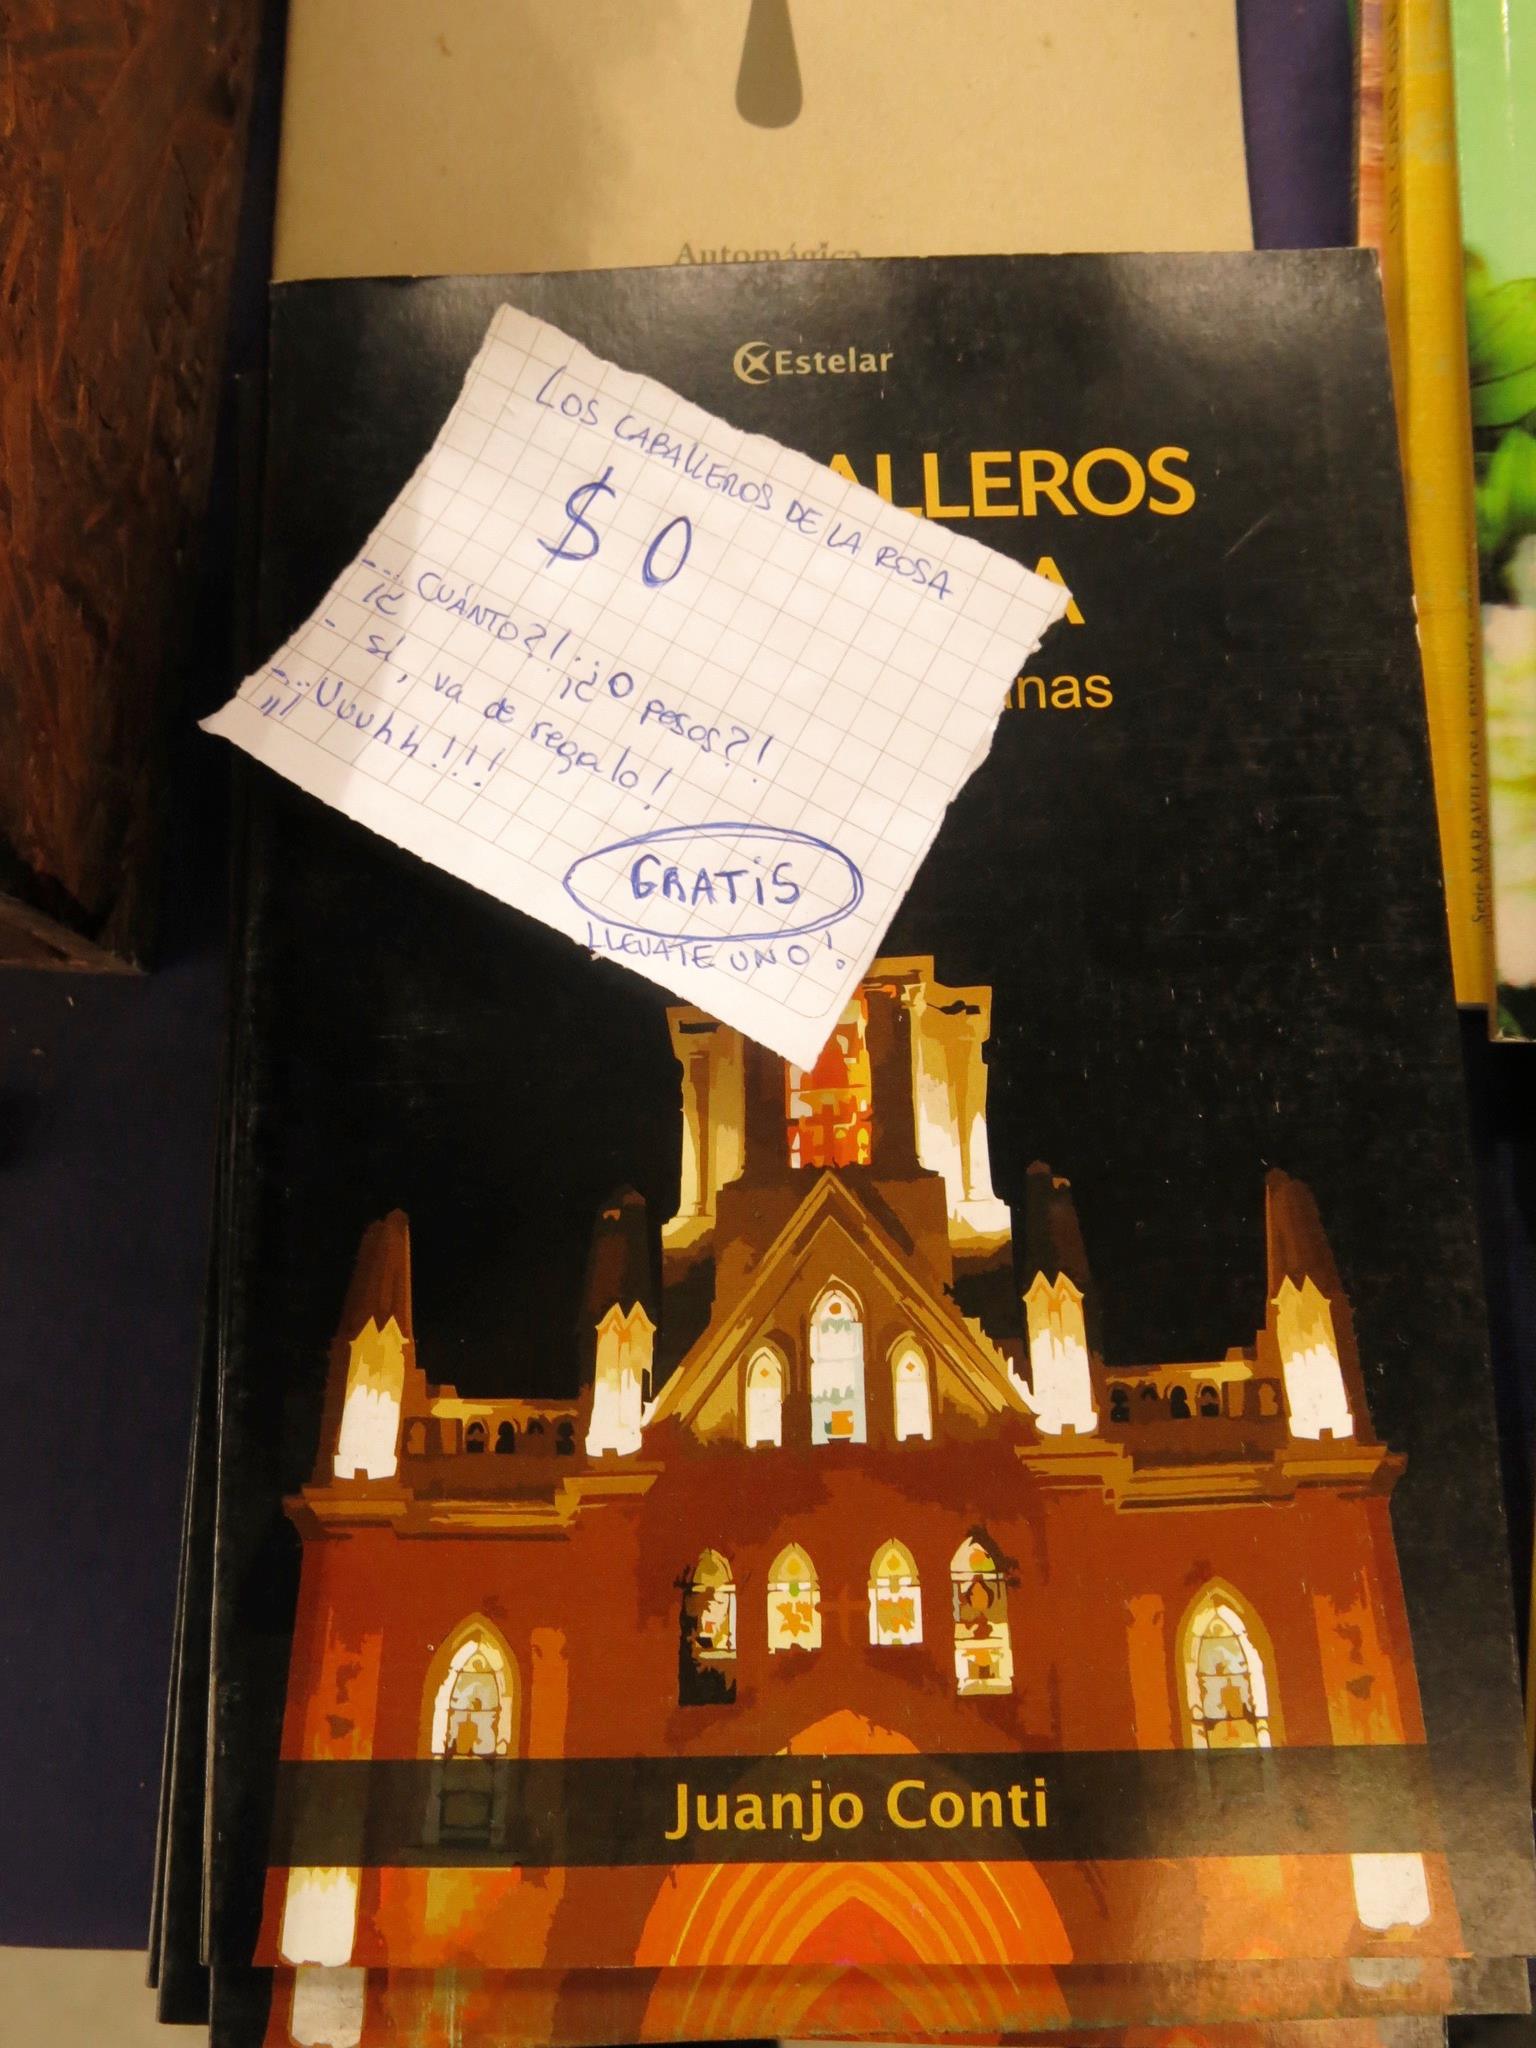 Automágica
Estelar
ALLEROS
A
nas
LOS CABALLEROS DE LA ROSA
$ 0
--- ¡¿CUÁNTO?! ¡¿0 pesos?!
- sí, va de regalo!
--- ¡¡¡Uuuhh!!!
GRATIS
LLEVATE UNO!
Juanjo Conti
Serie MARAVILLOSA